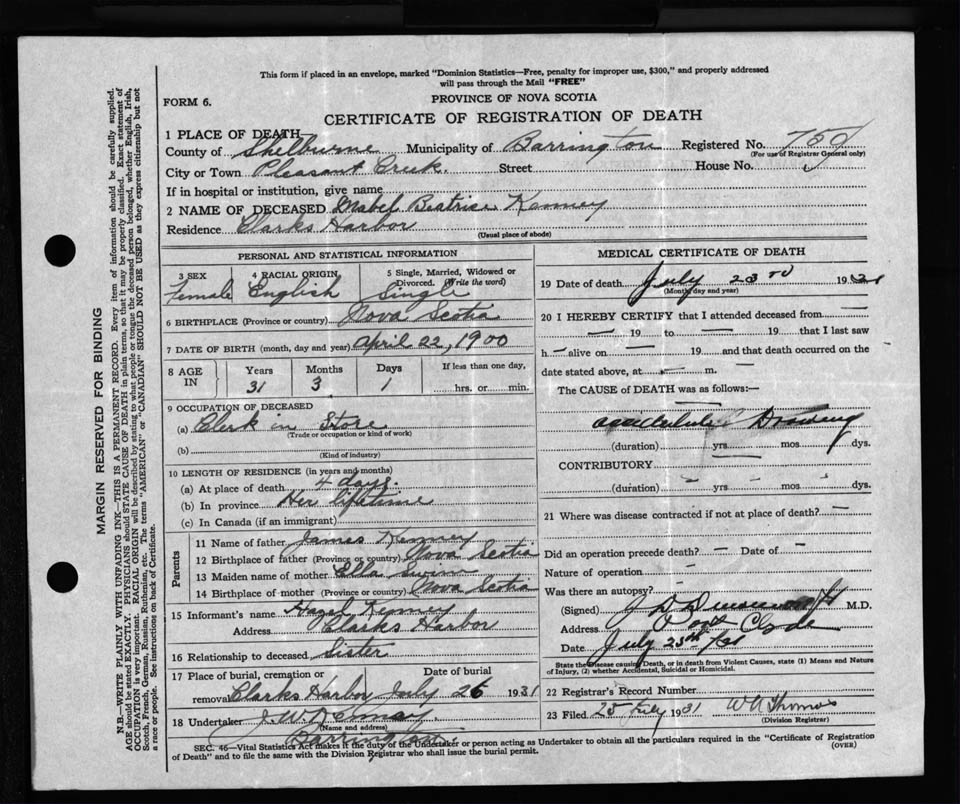 This form if placed in an envelope, marked "Dominion Statistics—Free, penalty for improper use, $300," and properly addressed
will pass through the Mail "FREE"
FORM 6.
PROVINCE OF NOVA SCOTIA
CERTIFICATE OF REGISTRATION OF DEATH
1 PLACE OF DEATH
County of Shelburne Municipality of Barrington Registered No.
(For use of Registrar General only)
City or Town Pleasant Street House No.
If in hospital or institution, give name
2 NAME OF DECEASED Mabel Beatrice Kenney
Residence Clarks Harbor
(Usual place of abode)
PERSONAL AND STATISTICAL INFORMATION
3 SEX 4 RACIAL ORIGIN 5 Single, Married, Widowed or Divorced. (Write the word)
Female English Single
6 BIRTHPLACE (Province or country) Nova Scotia
7 DATE OF BIRTH (month, day and year) April 22, 1900
8 AGE IN Years Months Days If less than one day,
31 3 1 hrs. or min.
9 OCCUPATION OF DECEASED
(a) Clerk in Store
(Trade or occupation or kind of work)
(b)
(Kind of industry)
10 LENGTH OF RESIDENCE (in years and months)
(a) At place of death 4 days.
(b) In province Her lifetime
(c) In Canada (if an immigrant)
Parents
11 Name of father James Kenney
12 Birthplace of father (Province or country) Nova Scotia
13 Maiden name of mother Ella Swim
14 Birthplace of mother (Province or country) Nova Scotia
15 Informant's name Hazel Kenney
Address Clarks Harbor
16 Relationship to deceased Sister
17 Place of burial, cremation or Date of burial
removal Clarks Harbor July 26 1931
18 Undertaker J. W.
(Name and address)
Barrington
MEDICAL CERTIFICATE OF DEATH
19 Date of death July 23rd 1931
(Month, day and year)
20 I HEREBY CERTIFY that I attended deceased from —
— 19 to — 19 that I last saw
h — alive on — 19 and that death occurred on the
date stated above, at — m.
The CAUSE of DEATH was as follows:—
Drowning
(duration) yrs mos dys.
CONTRIBUTORY
(duration) yrs mos dys.
21 Where was disease contracted if not at place of death? —
Did an operation precede death? — Date of —
Nature of operation —
Was there an autopsy?
(Signed) M.D.
Address Port Clyde
Date July
State the Disease causing Death, or in death from Violent Causes, state (1) Means and Nature
of Injury, (2) whether Accidental, Suicidal or Homicidal.
22 Registrar's Record Number
23 Filed 25 July 1931 W A Thomas
(Division Registrar)
SEC. 46—Vital Statistics Act makes it the duty of the Undertaker or person acting as Undertaker to obtain all the particulars required in the "Certificate of Registration
of Death" and to file the same with the Division Registrar who shall issue the burial permit.
(OVER)
MARGIN RESERVED FOR BINDING
N.B.—WRITE PLAINLY WITH UNFADING INK—THIS IS A PERMANENT RECORD. Every item of information should be carefully supplied.
AGE should be stated EXACTLY. PHYSICIANS should STATE CAUSE OF DEATH in plain terms, so that it may be properly classified. Exact statement of
OCCUPATION is very important. RACIAL ORIGIN will be described by stating to what people or tongue the deceased person belonged, whether English, Irish,
Scotch, French, German, Russian, Ruthenian, etc. The terms "AMERICAN" or "CANADIAN" SHOULD NOT BE USED as they express citizenship but not
a race or people. See instructions on back of Certificate.